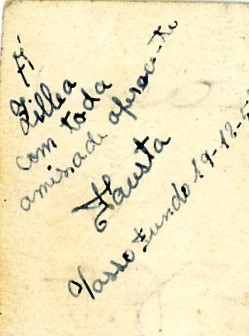 À
Zillea
com toda
amisade oferece-te
Fausta
Passo Fundo 19-12-5